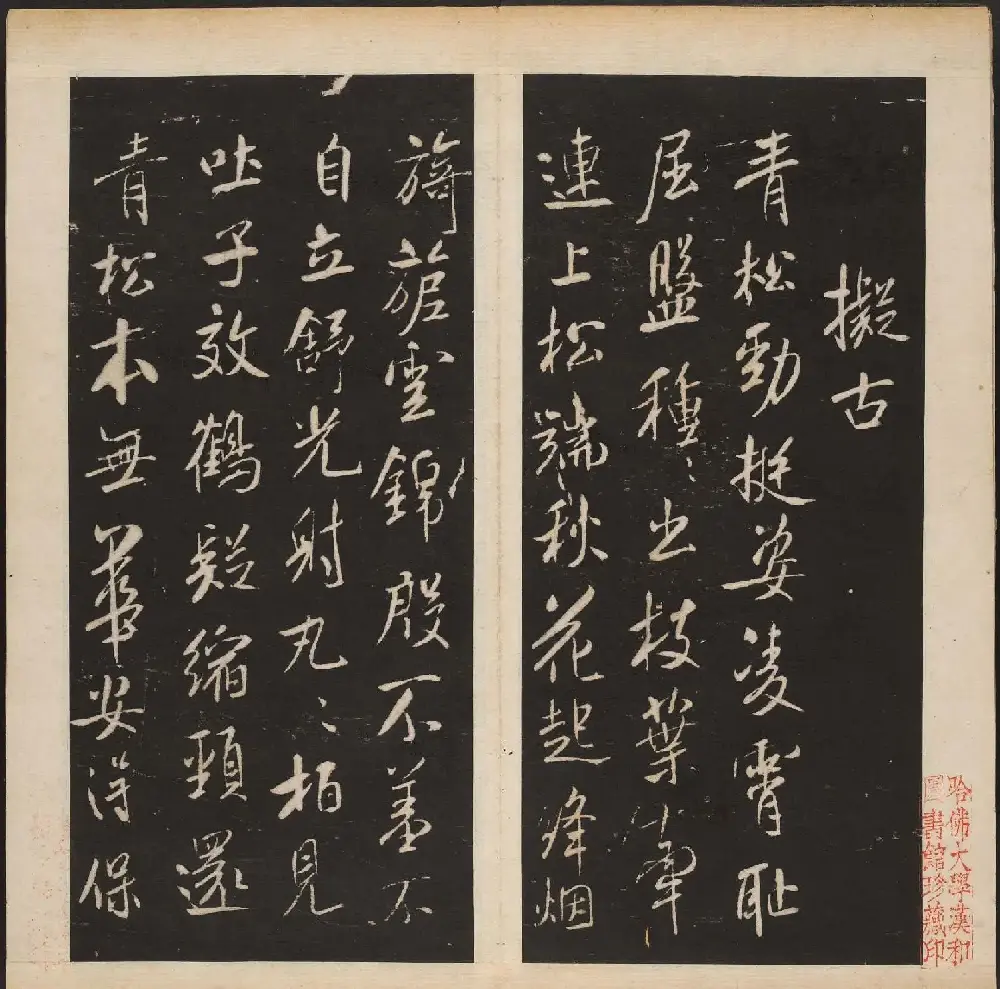 擬古
青松勁挺姿凌霄恥
屈盤種〻出枝葉牽
連上松端秋花起絳烟
旖旎雲錦殷不羞不
自立舒光射丸〻柏見
吐子效鶴疑縮頸還
青松本無華安得保
哈佛大學漢和
圖書館珍藏印